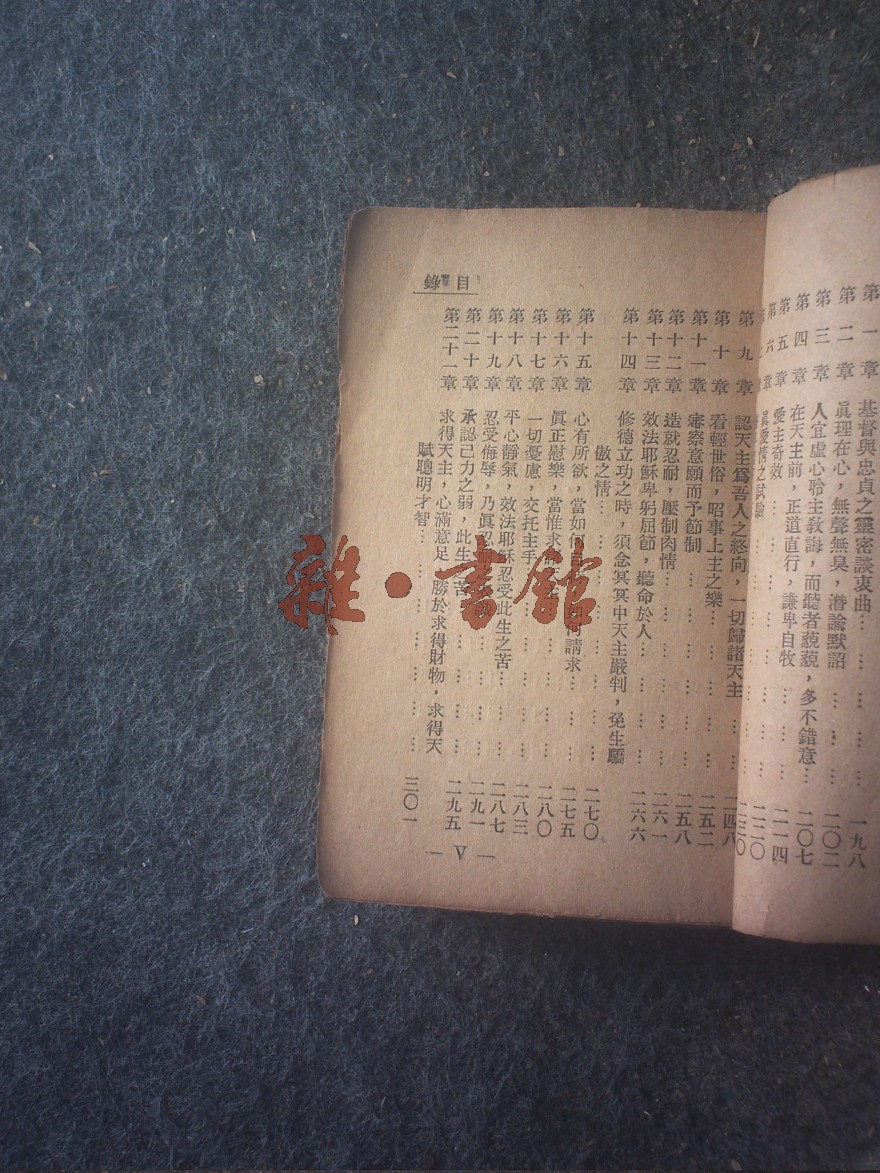 第一章 基督與忠貞之靈密談衷曲…… 一九八
第二章 眞理在心，無聲無臭，潛諭默詔 二〇二
第三章 人宜虛心聆主敎誨，而聽者藐藐，多不錯意… 二〇七
第四章 在天主前，正道直行，謙卑自牧…… 二一四
第五章 愛主奇效…… 二二〇
六章 眞愛情之試驗…… 二三〇
章
目錄
第九章 認天主爲吾人之終向，一切歸諸天主…… 二四八
第十章 看輕世俗，昭事上主之樂…… 二五二
第十一章 審察意願而予節制…… 二五八
第十二章 造就忍耐，壓制肉情…… 二六一
第十三章 效法耶穌卑躬屈節，聽命於人…… 二六六
第十四章 修德立功之時，須念冥冥中天主嚴判，免生驕
傲之情…… 二七〇
第十五章 心有所欲，當如何 何請求…… 二七五
第十六章 眞正慰樂，當惟求 二八〇
第十七章 一切憂慮，交托主手…… 二八三
第十八章 平心靜氣，效法耶穌忍受此生之苦…… 二八七
第十九章 忍受侮辱，乃眞忍耐 二九一
第二十章 承認己力之弱，此生之苦…… 二九五
第二十一章 求得天主，心滿意足，勝於求得財物，求得天
賦聰明才智…… 三〇一
— V —
雜·書館